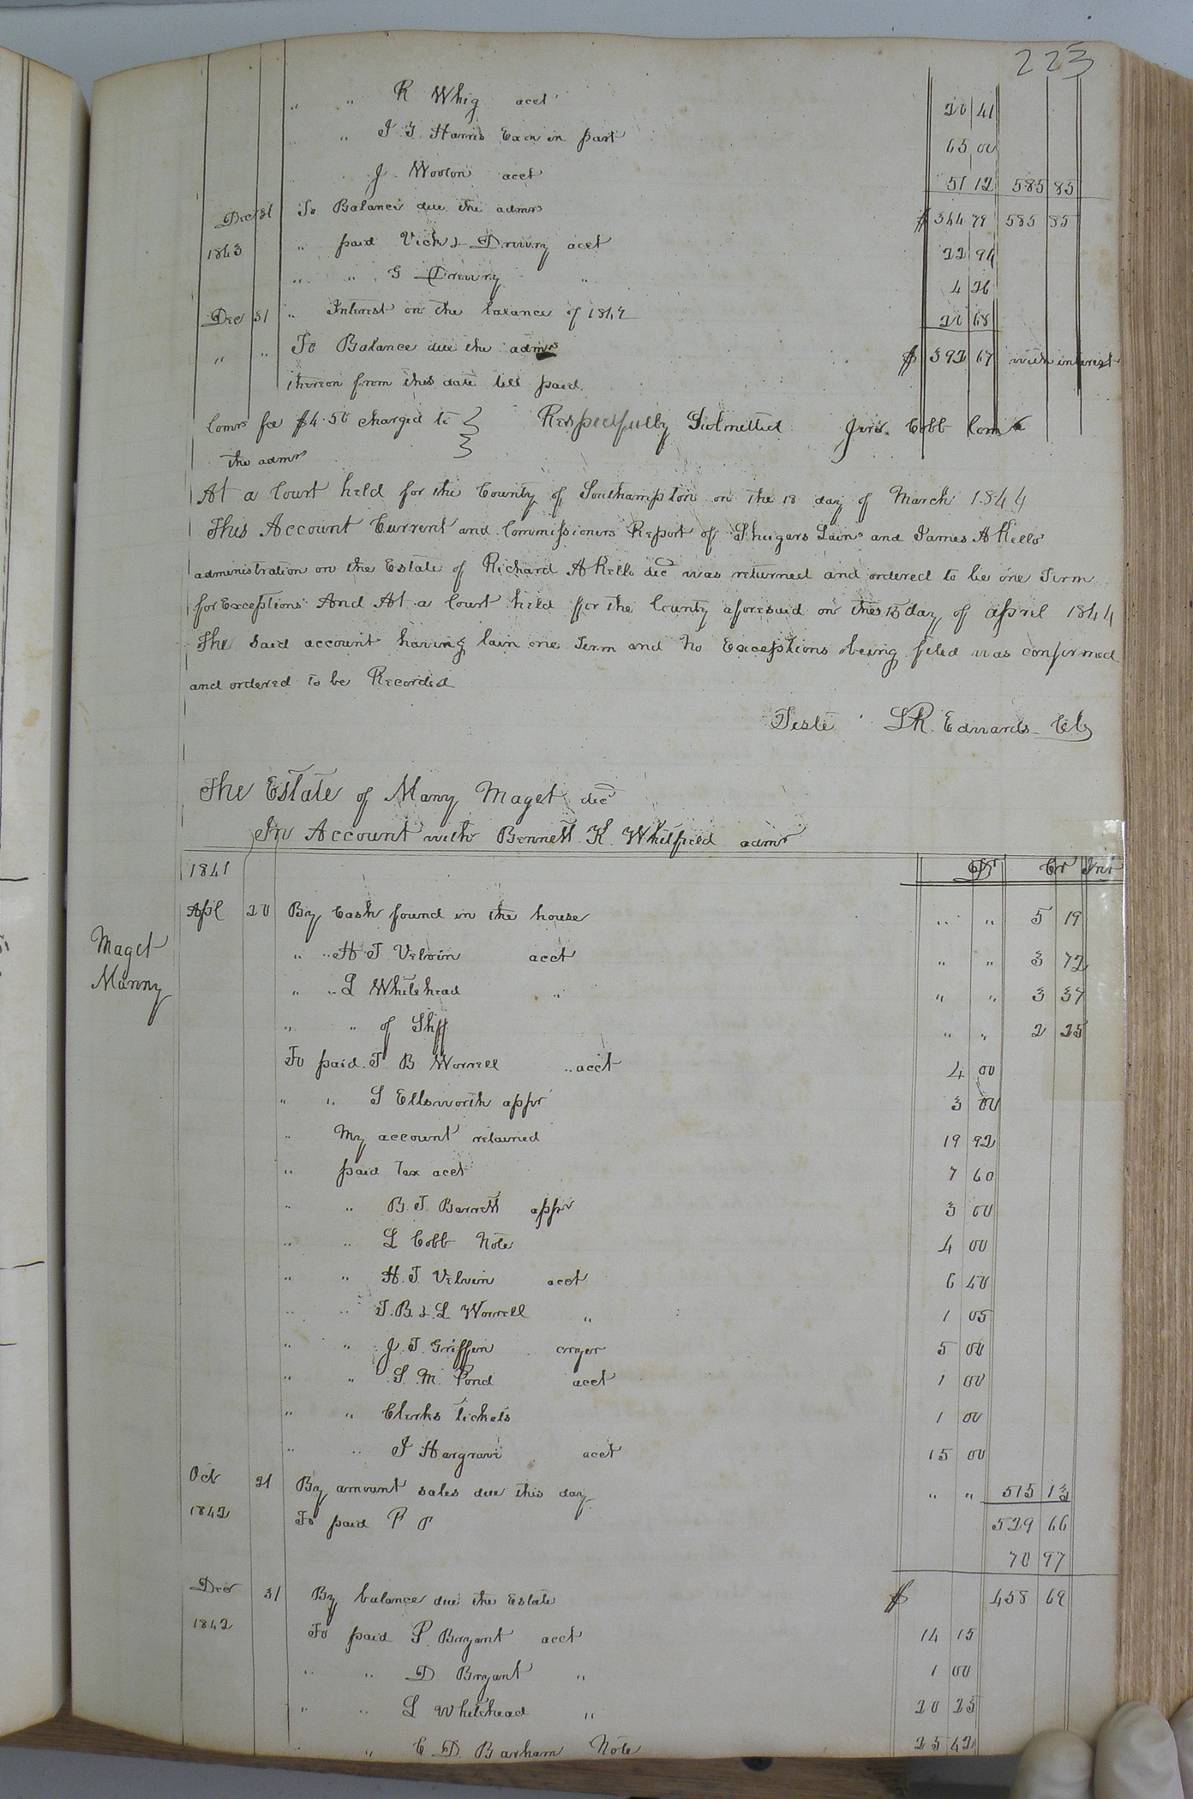 223
" " R Whig acct 20 41
" J T Harris Exor in part 65 00
J. Wooton acct 51 12 585 85
Dec 31 To Balance due the admrs $ 344 79 585 85
1843 " paid Vick & Drewry acct 22 94
" " G Drewry " 4 26
Dec 31 " Interest on the balance of 1842 20 68
" " To Balance due the admrs $ 392 67 with interest
thereon from this date till paid
Comrs fee $4.50 charged to } Respectfully Submitted Jere. Cobb Comr
the admrs
At a Court held for the County of Southampton on the 18 day of March 1844
This Account Current and Commissioners Report of Shugars Lain and James A Kello
administration on the Estate of Richard A Kello decd was returned and ordered to lie one Term
for Exceptions And At a Court held for the County aforesaid on the 15 day of April 1844
The Said account having lain one Term and No Exceptions being filed was confirmed
and ordered to be Recorded
Teste L R. Edwards Clk
The Estate of Manny Maget decd
In Account with Bennett K. Whitfield admr
1841 Dr Cr Int
Apl 20 By Cash found in the house " " 5 19
Maget
Manny
" " H T Velvin acct " " 3 72
" " L Whitehead " " " 3 37
" " of Shff " " 2 25
To paid T B Worrell " acct 4 00
" " S Ellsworth appr 3 00
" My account retained 19 92
" paid Tax acct 7 60
" " B. T. Barrett appr 3 00
" " L Cobb Note 4 00
" " H. T. Velvin acct 6 40
" " T. B. & L Worrell " 1 05
" " J. T. Griffin cryer 5 00
" " S. M. Pond acct 1 00
" " Clerks tickets 1 00
" " J Hargrave acct 15 00
Oct 21 By amount sales due this day " " 515 13
1842 To paid P P 529 66
70 97
Decr 31 By balance due the Estate $ 458 69
1842 To paid P. Bryant acct 14 15
" " D Bryant " 1 00
" " L Whitehead " 20 25
" " C D Barham Note 25 42